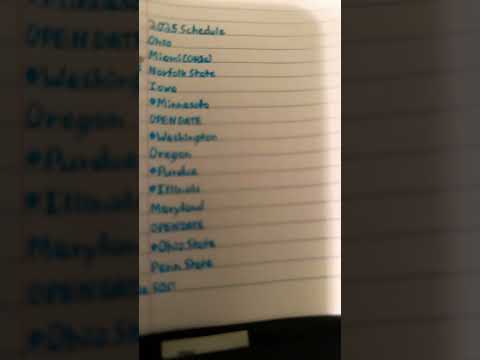 2025 Schedule
Ohio
Miami (Ohio)
Norfolk State
Iowa
*Minnesota
OPEN DATE
*Washington
Oregon
*Purdue
*Illinois
Maryland
OPEN DATE
*Ohio State
Penn State